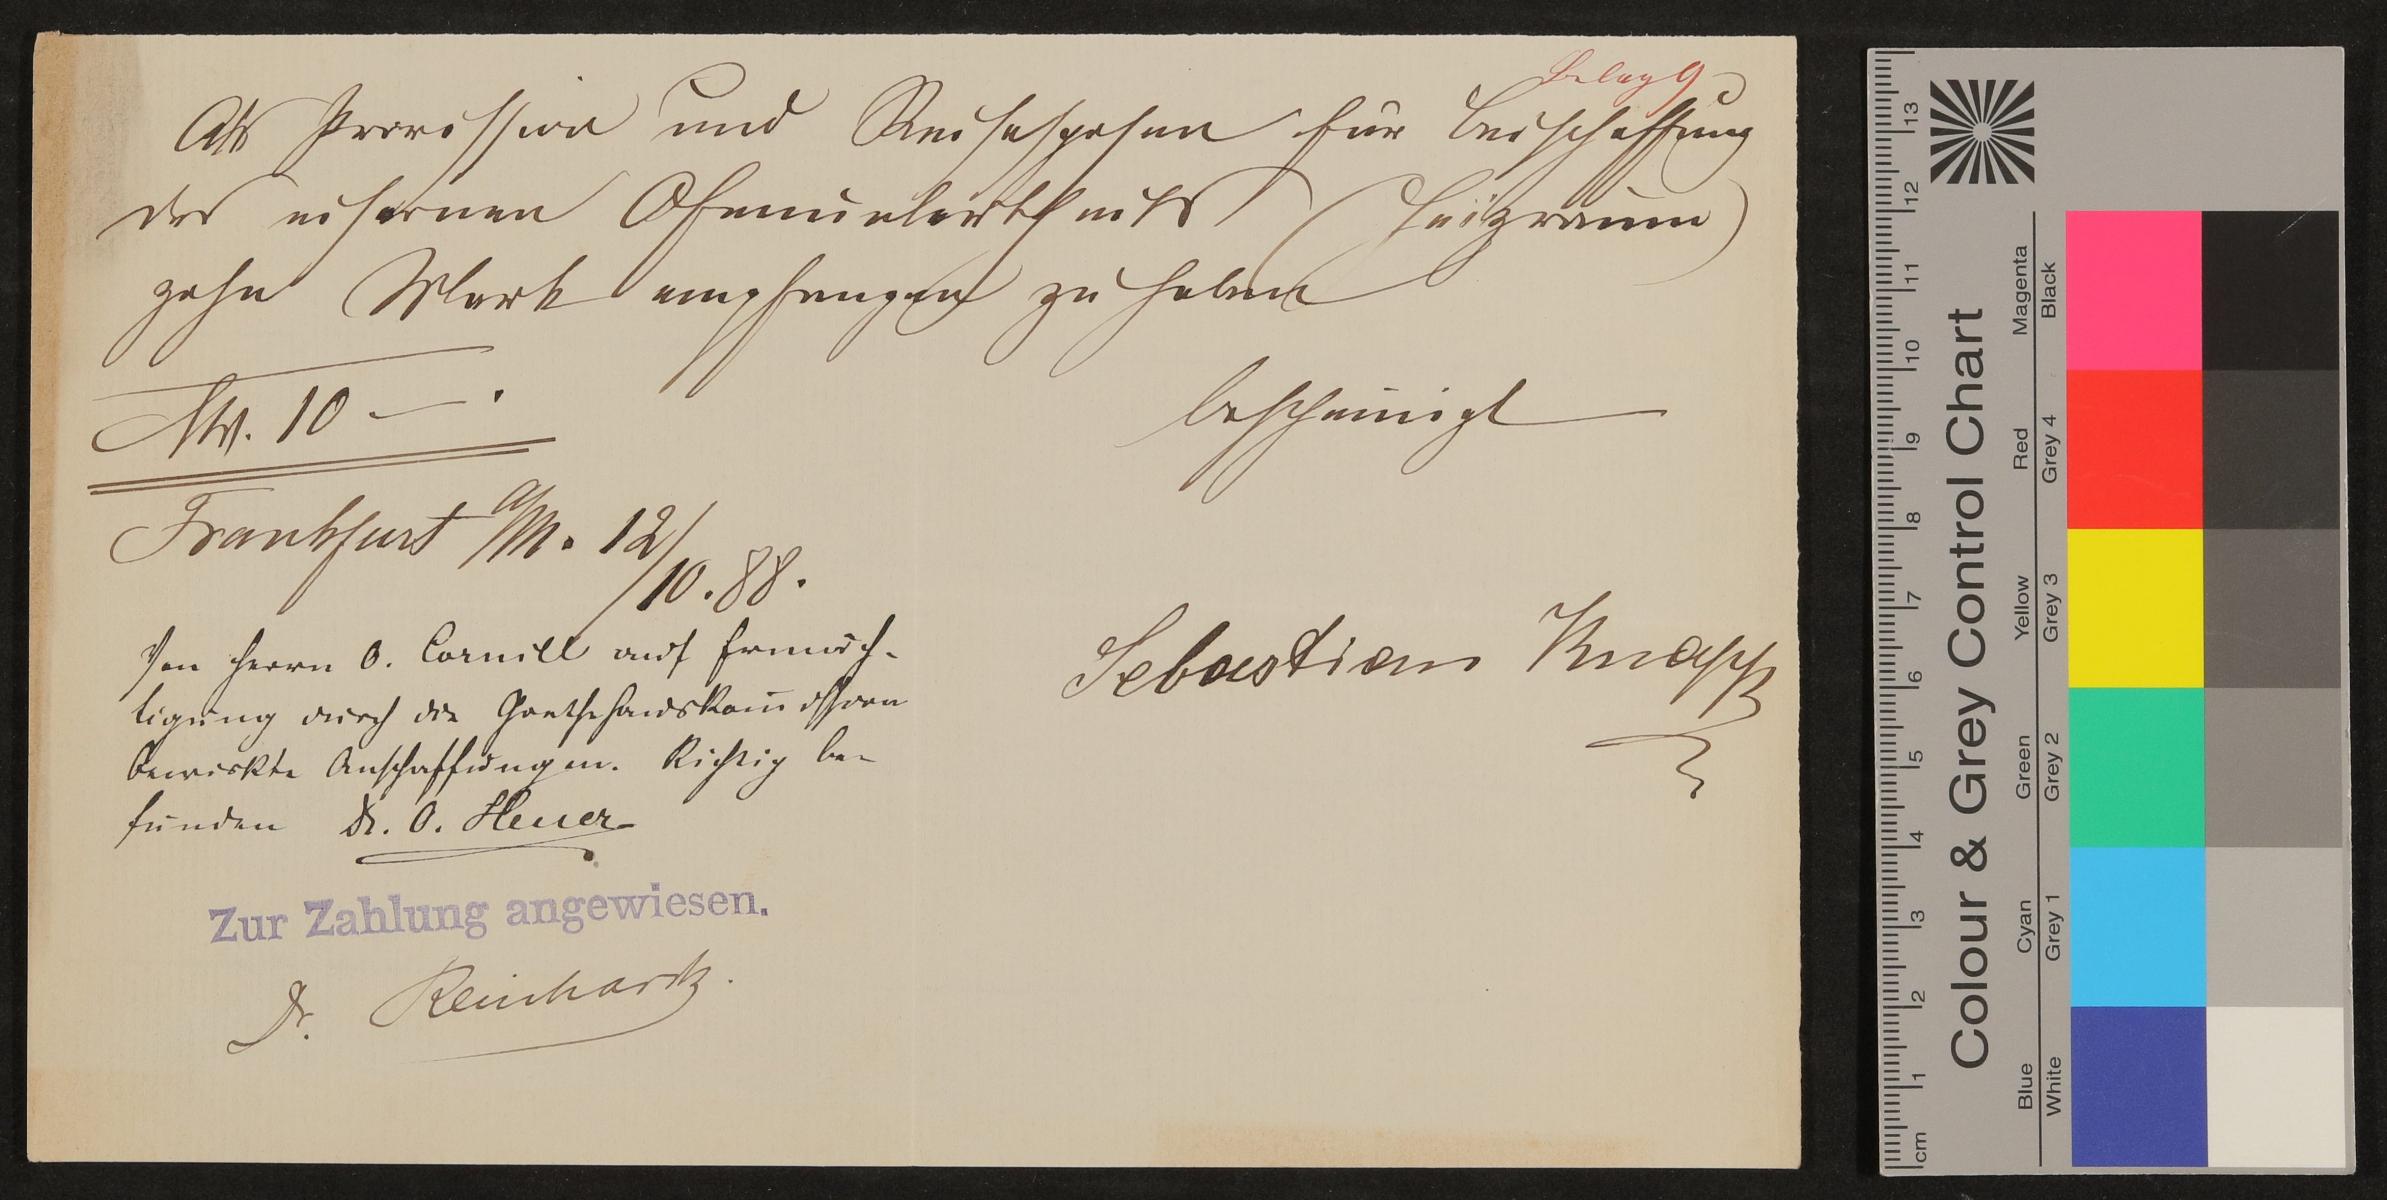 Belag 9
Als Provission und Reisespesen für Beischaffung
des eisernen Ofenuntertheils (Heizraum)
zehn Mark empfangen zu haben
bescheinigt
Mk. 10 —.
Frankfurt a/M. 12/10.88.
Sebastian Knapp
Von Herrn O. Cornill auf Ermäch-
tigung durch die Goethehauskom̄ission
bewirkte Anschaffungen. Richtig be-
funden Dr. O. Heuer
Zur Zahlung angewiesen.
Dr. Reinhartz.
Colour & Grey Control Chart
Blue Cyan Green Yellow Red Magenta
White Grey 1 Grey 2 Grey 3 Grey 4 Black
cm 1 2 3 4 5 6 7 8 9 10 11 12 13